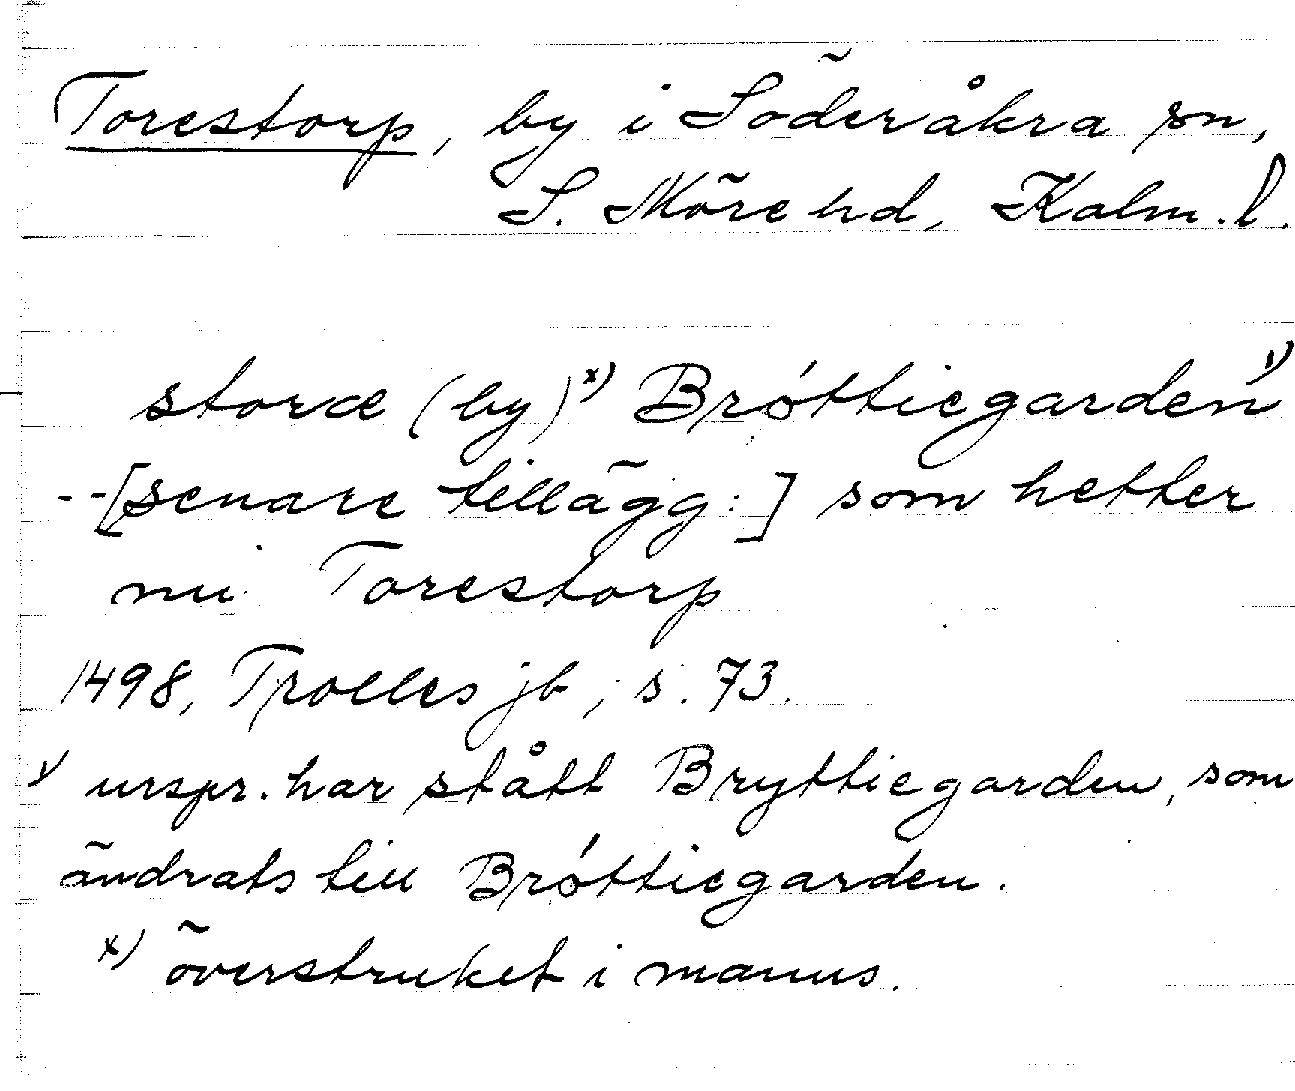 Torestorp, by i Söderåkra sn,
S. Möre hd, Kalm. l.
storæ (by)x) Bróttiegarden1)
--[senare tillägg:] som hetter
nu Torestorp
1498, Trolles jb, s. 73.
1) urspr. har stått Bryttiegarden, som
ändrats till Bróttiegarden.
x) överstruket i manus.